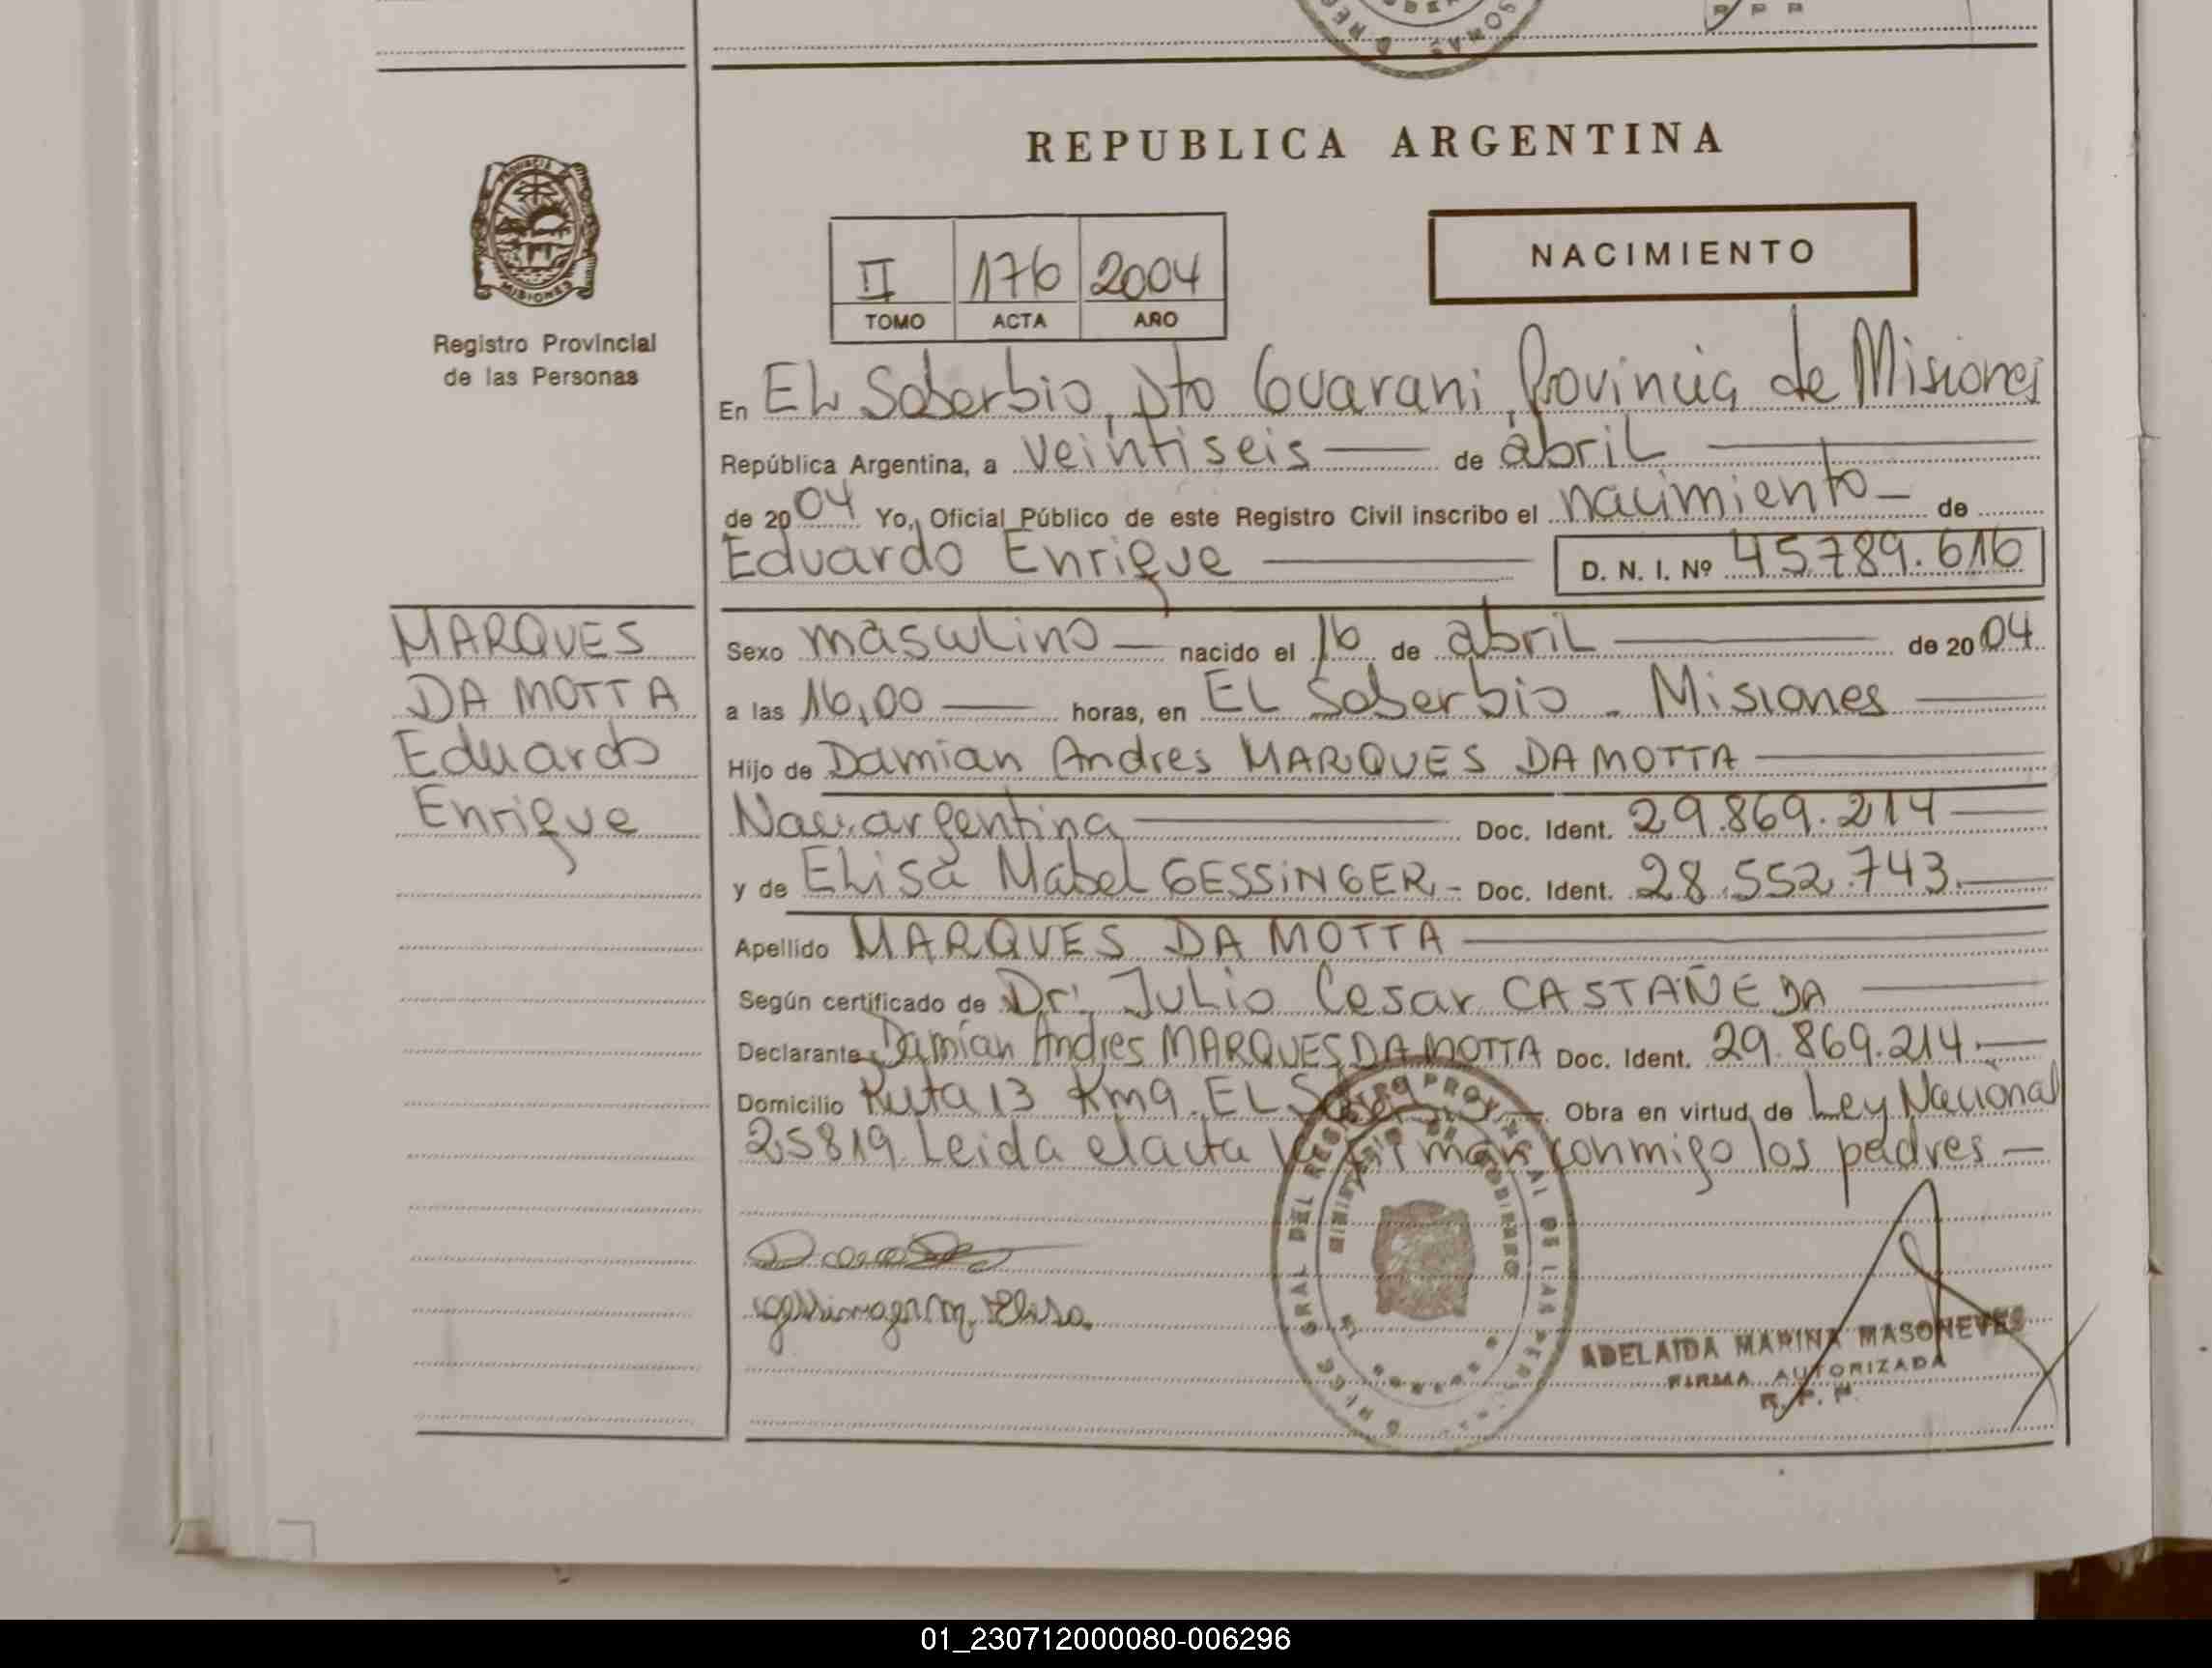 REPUBLICA ARGENTINA
PROVINCIA
MISIONES
Registro Provincial
de las Personas
II 176 2004
TOMO ACTA AÑO
NACIMIENTO
En EL Soberbio, Dto Guarani, Provincia de Misiones
República Argentina, a veintiseis de abril
de 2004 Yo, Oficial Público de este Registro Civil inscribo el nacimiento de
Eduardo Enrique D. N. I. Nº 45.789.616
MARQUES
DA MOTTA
Eduardo
Enrique
Sexo masculino nacido el 16 de abril de 2004
a las 16,00 horas, en EL Soberbio - Misiones
Hijo de Damian Andres MARQUES DA MOTTA
Nac. argentina Doc. Ident. 29.869.214
y de Elisa Mabel GESSINGER - Doc. Ident. 28.552.743.
Apellido MARQUES DA MOTTA
Según certificado de Dr. Julio Cesar CASTAÑEDA
Declarante Damian Andres MARQUES DA MOTTA Doc. Ident. 29.869.214.
Domicilio Ruta 13 Km 9. EL Soberbio Obra en virtud de Ley Nacional
25819. Leida el acta la firman conmigo los padres
GRAL DEL REGISTRO PROVINCIAL DE LAS
MINISTERIO DE GOBIERNO
ADELAIDA MARINA MASONEVES
FIRMA AUTORIZADA
R. P. P.
01_230712000080-006296